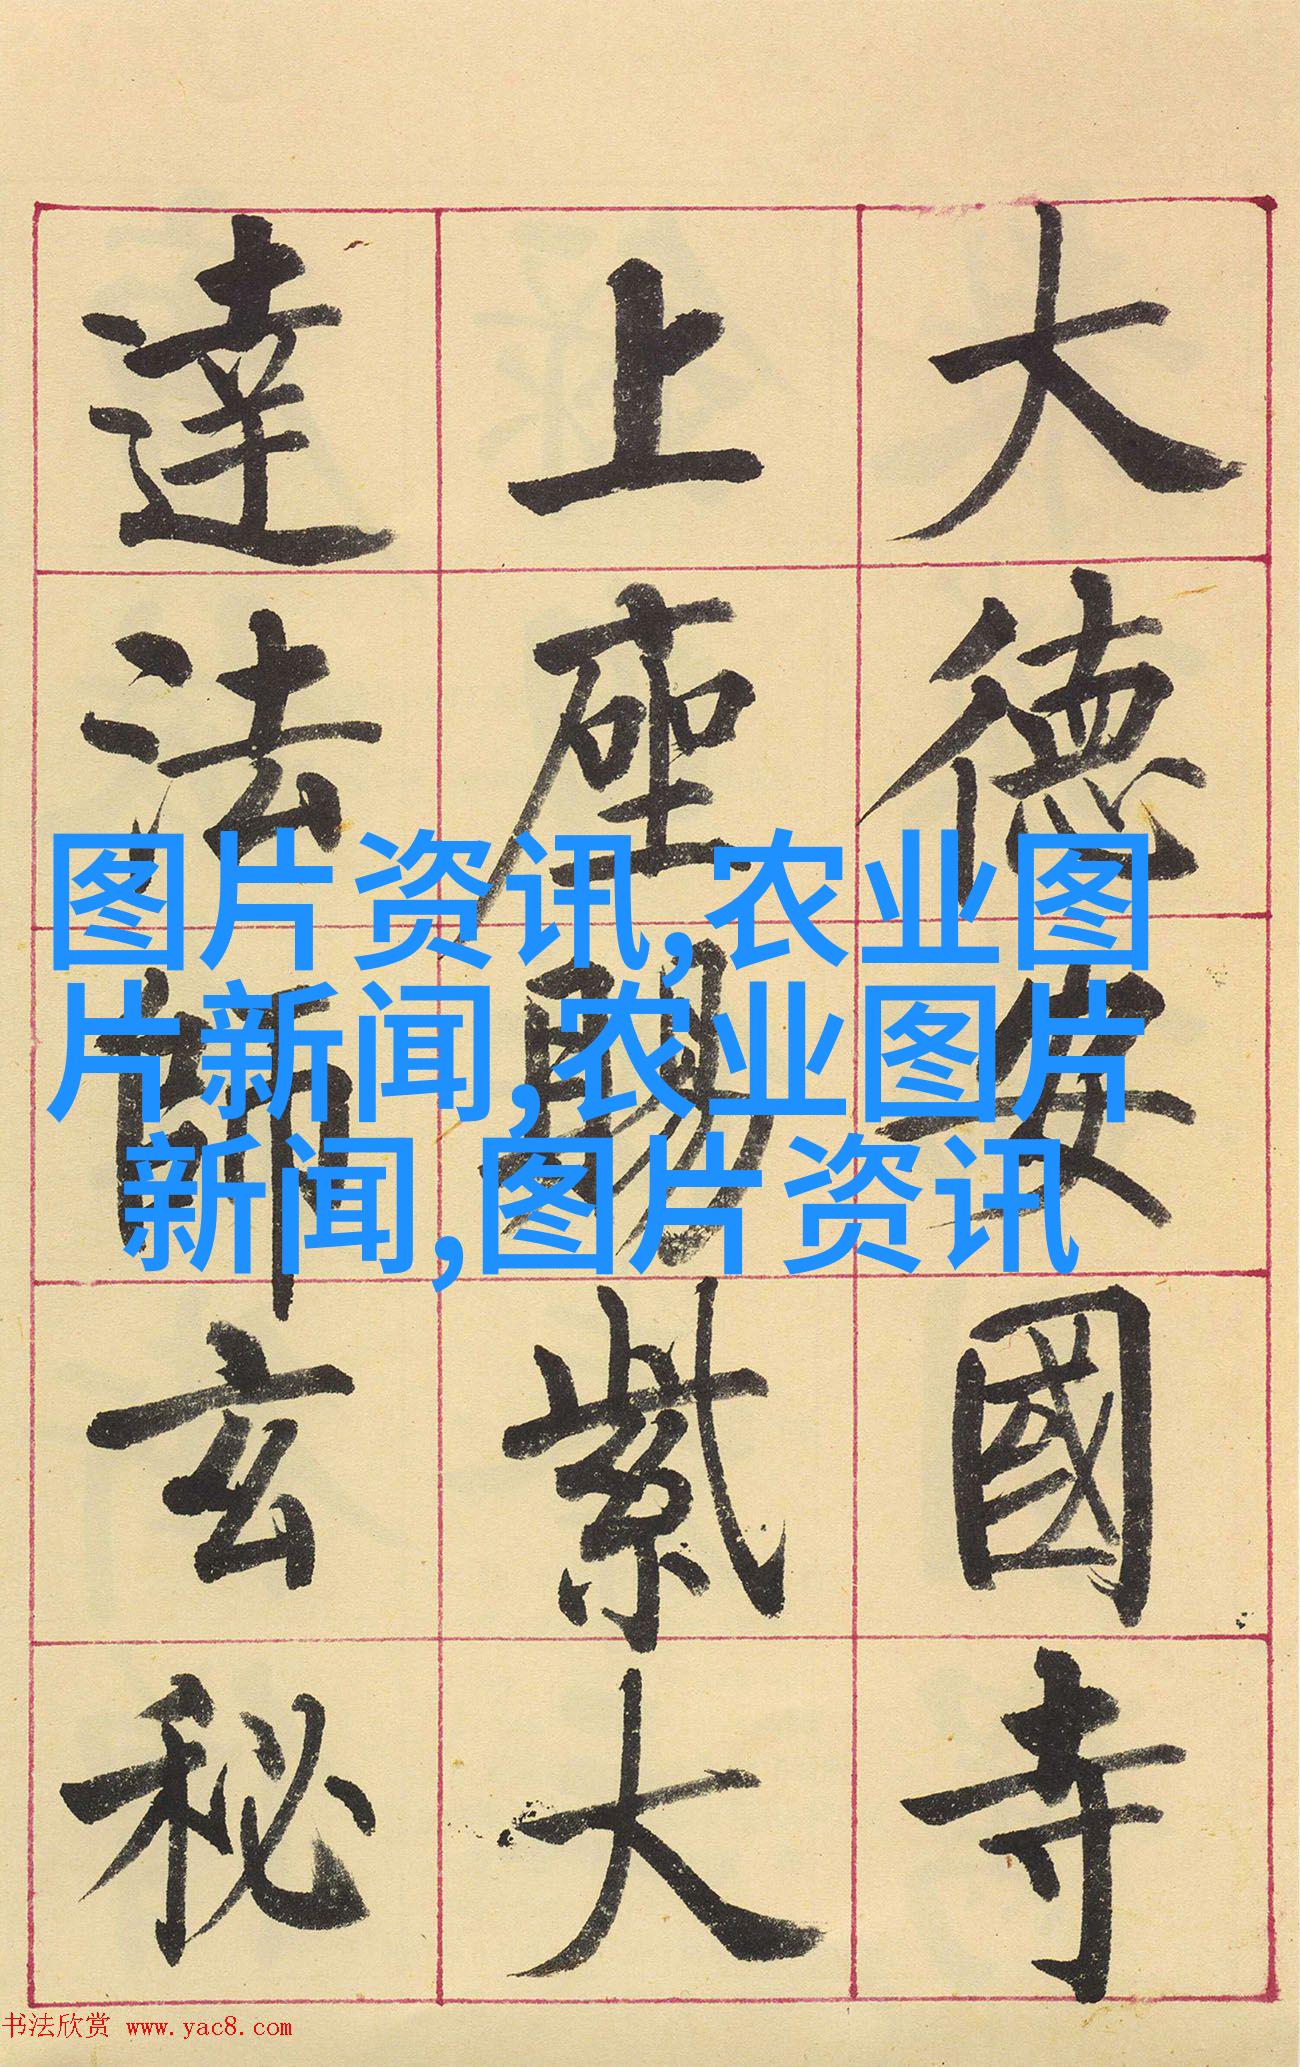 大德安國寺
上座賜紫大
達法師玄秘
图片资讯,农业图
片新闻,农业图片
新闻,图片资讯
书法欣赏 www.yac8.com